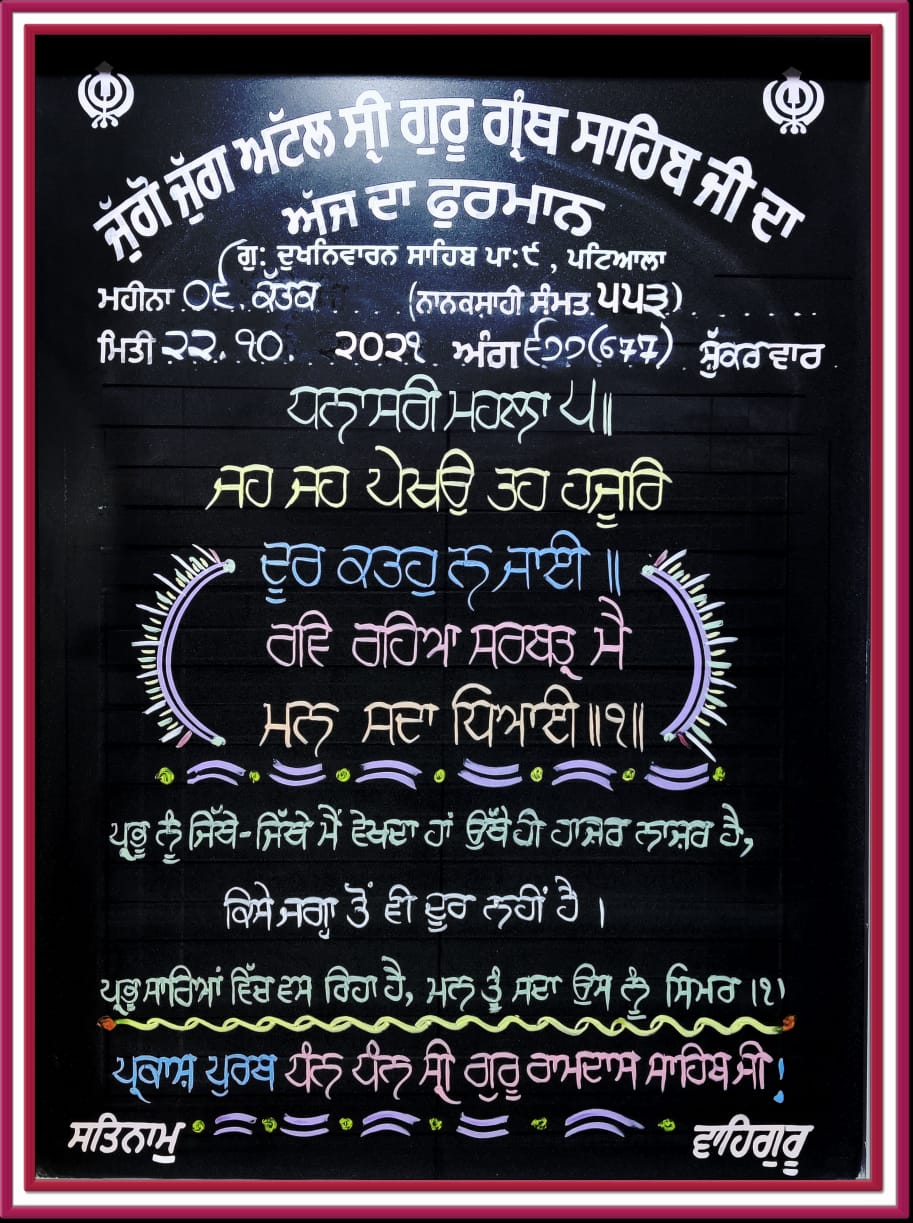 ਜੁੱਗੋ ਜੁੱਗ ਅਟੱਲ ਸ੍ਰੀ ਗੁਰੂ ਗ੍ਰੰਥ ਸਾਹਿਬ ਜੀ ਦਾ
ਅੱਜ ਦਾ ਫ਼ੁਰਮਾਨ
ਗੁ: ਦੁਖਨਿਵਾਰਨ ਸਾਹਿਬ ਪਾ:੯ , ਪਟਿਆਲਾ
ਮਹੀਨਾ ੦੬ ਕੱਤਕ (ਨਾਨਕਸਾਹੀ ਸੰਮਤ ੫੫੩)
ਮਿਤੀ ੨੨.੧੦. ੨੦੨੧ ਅੰਗ ੬੭੭(677) ਸ਼ੁੱਕਰਵਾਰ
ਧਨਾਸਰੀ ਮਹਲਾ ੫॥
ਜਹ ਜਹ ਪੇਖਉ ਤਹ ਹਜੂਰਿ
ਦੂਰ ਕਤਹੁ ਨ ਜਾਈ ॥
ਰਵਿ ਰਹਿਆ ਸਰਬਤ੍ਰ ਮੈ
ਮਨ ਸਦਾ ਧਿਆਈ ॥੧॥
ਪ੍ਰਭੂ ਨੂੰ ਜਿੱਥੇ-ਜਿੱਥੇ ਮੈਂ ਵੇਖਦਾ ਹਾਂ ਉੱਥੇ ਹੀ ਹਾਜ਼ਰ ਨਾਜ਼ਰ ਹੈ,
ਕਿਸੇ ਜਗ੍ਹਾ ਤੋਂ ਵੀ ਦੂਰ ਨਹੀਂ ਹੈ ।
ਪ੍ਰਭੂ ਸਾਰਿਆਂ ਵਿੱਚ ਵਸ ਰਿਹਾ ਹੈ, ਮਨ ਤੂੰ ਸਦਾ ਉਸ ਨੂੰ ਸਿਮਰ ।੧।
ਪ੍ਰਕਾਸ਼ ਪੁਰਬ ਧੰਨ ਧੰਨ ਸ੍ਰੀ ਗੁਰੂ ਰਾਮਦਾਸ ਸਾਹਿਬ ਜੀ !
ਸਤਿਨਾਮੁ ਵਾਹਿਗੁਰੂ